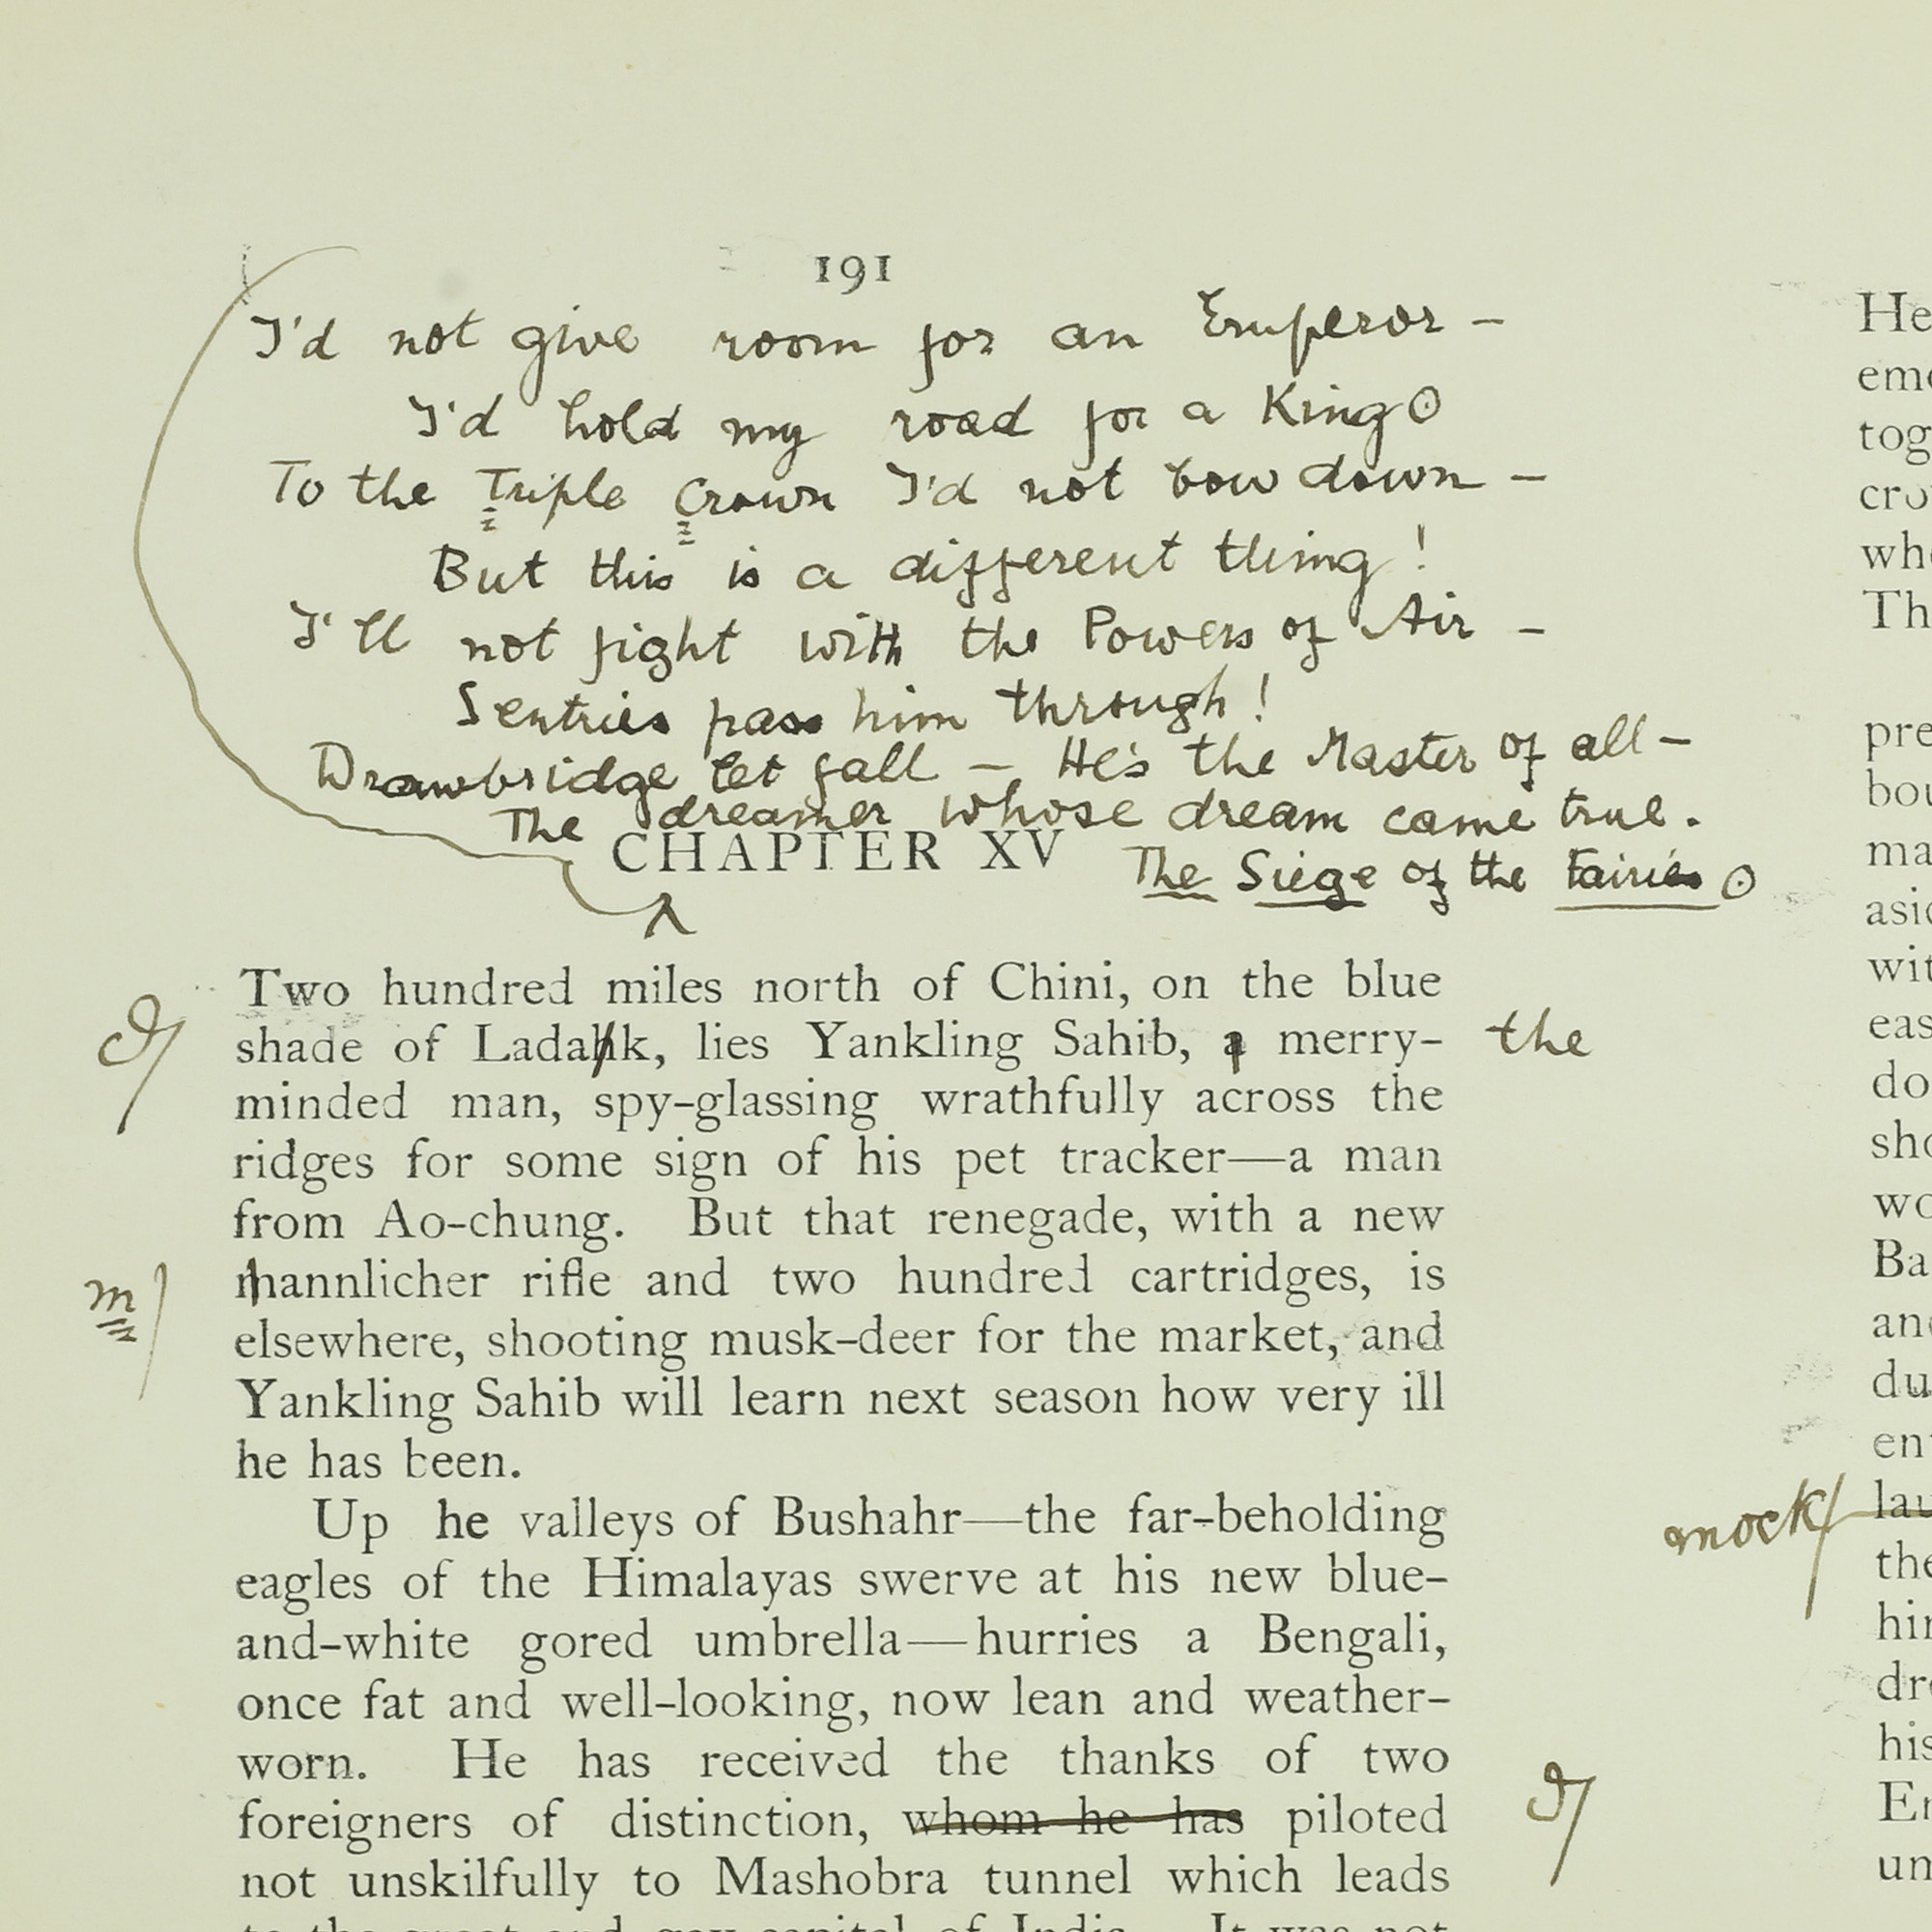 191
I'd not give room for an Emperor –
I'd hold my road for a King⊙
To the Triple Crown I'd not bow down –
But this is a different thing!
I'll not fight with the Powers of Air –
Sentries pass him through!
Drawbridge let fall – He's the Master of all –
The dreamer whose dream came true.
CHAPTER XV
The Siege of the Fairies⊙
Two hundred miles north of Chini, on the blue
shade of Ladahk, lies Yankling Sahib, a merry-
the
minded man, spy-glassing wrathfully across the
ridges for some sign of his pet tracker—a man
from Ao-chung. But that renegade, with a new
m/
mannlicher rifle and two hundred cartridges, is
elsewhere, shooting musk-deer for the market, and
Yankling Sahib will learn next season how very ill
he has been.
Up he valleys of Bushahr—the far-beholding
eagles of the Himalayas swerve at his new blue-
and-white gored umbrella—hurries a Bengali,
once fat and well-looking, now lean and weather-
worn. He has received the thanks of two
foreigners of distinction, whom he has piloted
not unskilfully to Mashobra tunnel which leads
to the great and gay capital of India. It was not
mock/
He
tog
wh
Th
pre
bou
ma
wit
eas
do
sho
wo
Ba
an
du
en
lau
the
his
un